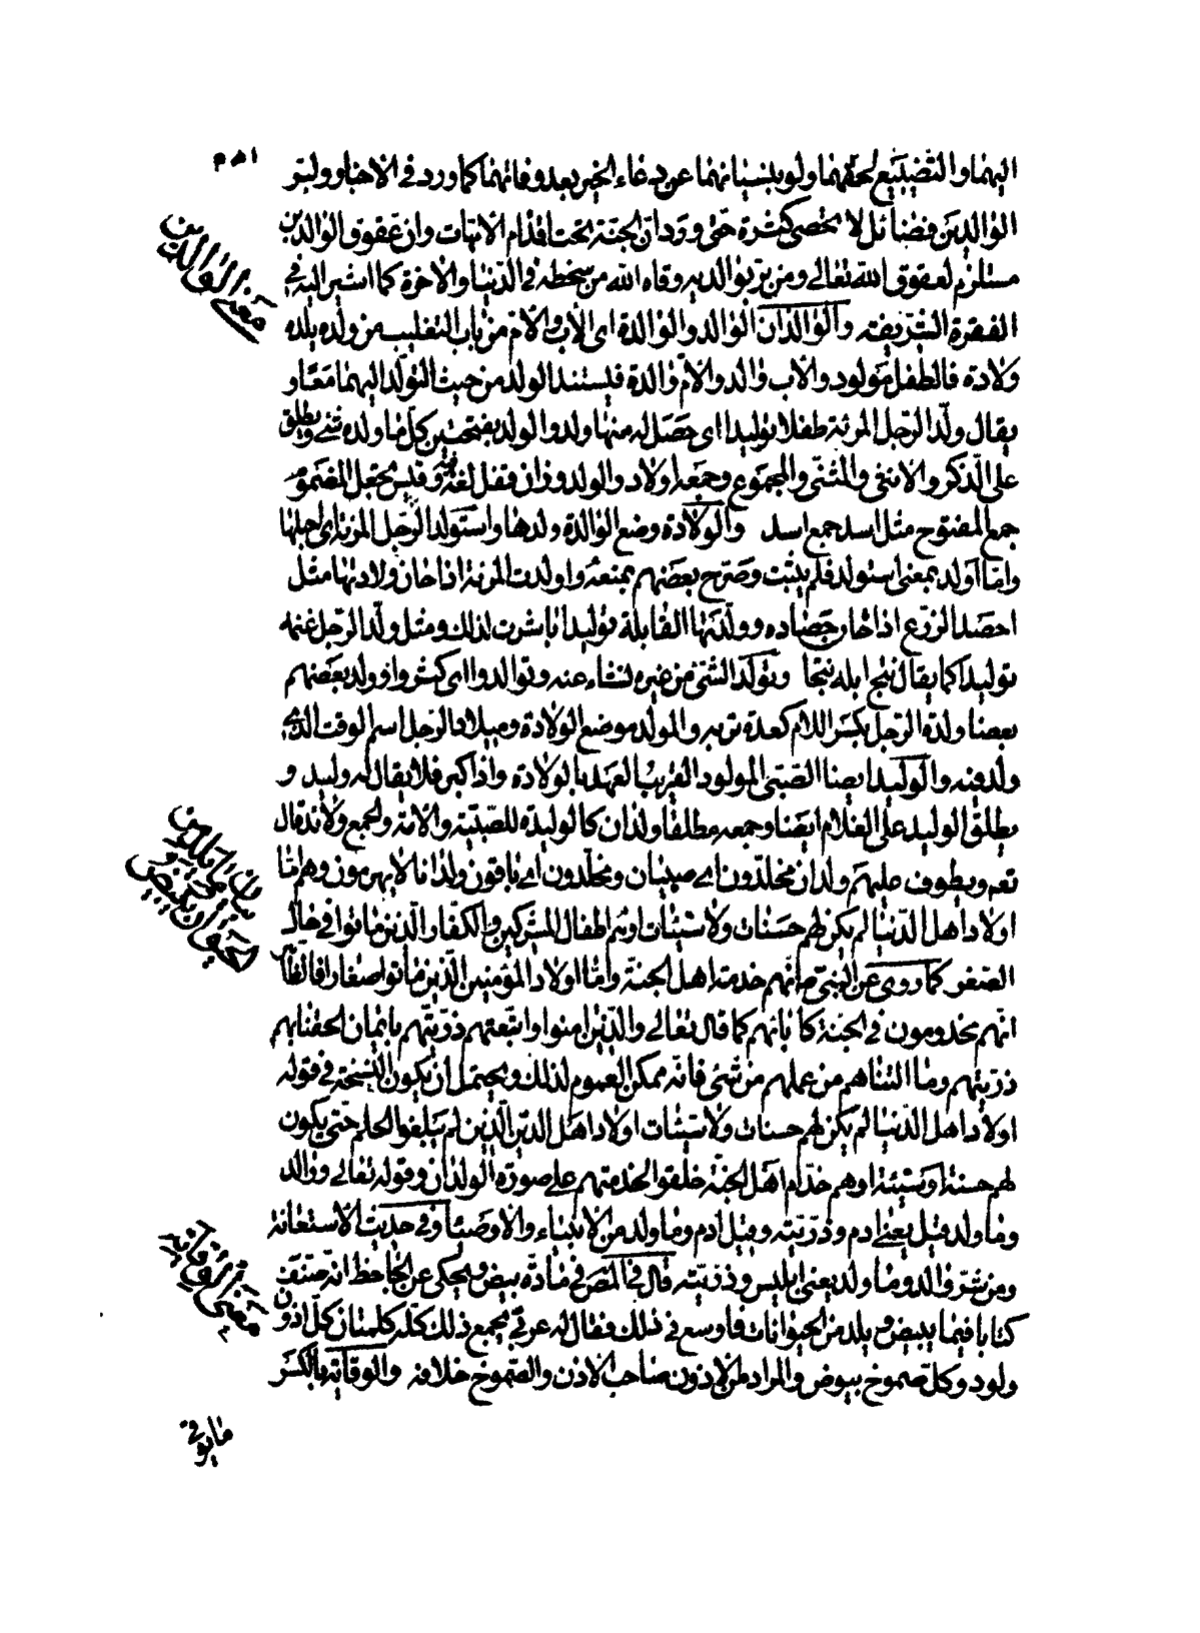 اليهما والتضييع لحقهما ولو بنسيانهما عن دعاء الخير بعد وفاتهما كما ورد في الاخبار ولبر
الوالدين فضائل لا تحصى كثرة حتى ورد ان الجنة تحت اقدام الامهات وان عقوق الوالدين
مستلزم لعقوق الله تعالى ومن بر بوالديه وقاه الله من سخطه في الدنيا والاخرة كما اشير اليه في
الفقرة الشريفة والوالدان الوالد والوالدة اى الاب والام من باب التغليب من ولده يلده
ولادة فالطفل مولود والاب والد والام والدة فيستند الولد من حيث التولد اليهما معا و
يقال ولد الرجل المرئة طفلا توليدا اى حصل له منها ولد والولد بفتحتين كل ما ولده شئ ويطلق
على الذكر والانثى والمثنى والمجموع وجمعه اولاد والولد وزان قفل لغة فيه وقيس يجعل المضموم
جمع المفتوح مثل اسد جمع اسد والولادة وضع الوالدة ولدها واستولد الرجل المرئة اى احبلها
واما اولد بمعنى استولد فلم يثبت وصرح بعضهم بمنعه واولدت المرئة اذا حان ولادتها مثل
احصد الزرع اذا حان حصاده وولدتها القابلة توليدا باشرت لذلك ومثل ولد الرجل غنمه
توليدا كما يقال نتج ابله نتجا وتولد الشئ من غيره نشاء عنه وتوالدوا اى كثروا وولد بعضهم
بعضا ولدة الرجل بكسر اللام كعدة تربه والمولد موضع الولادة وميلاد الرجل اسم الوقت الذى
ولد فيه والوليد ايضا الصبى المولود القريب العهد بالولادة واذا كبر فلا يقال له وليد و
يطلق الوليد على الغلام ايضا وجمعه مطلقا ولدان كالوليدة للصبية والامة والجمع ولائد قال
تعه ويطوف عليهم ولدان مخلدون اى صبيان ومخلدون اى باقون ولدانا لا يهرمون وهم اما
اولاد اهل الدنيا لم يكن لهم حسنات ولا سيئات او هم اطفال المشركين والكفار الذين ماتوا في حال
الصغر كما روى عن النبي ص انهم خدمة اهل الجنة واما اولاد المؤمنين الذين ماتوا صغارا فالظاهر
انهم مخدومون في الجنة كابائهم كما قال تعالى والذين امنوا واتبعتهم ذريتهم بايمان الحقنا بهم
ذريتهم وما التناهم من عملهم من شئ فانه ممكن العموم لذلك ويحتمل ان يكون النسخة في قوله
اولاد اهل الدنيا لم يكن لهم حسنات ولا سيئات اولاد اهل الدين الذين لم يبلغوا الحلم حتى يكون
لهم حسنة او سيئة او هم خدام اهل الجنة خلقوا لخدمتهم على صورة الولدان وقوله تعالى ووالد
وما ولد قيل يعنى ادم وذريته وقيل ادم وما ولد من الانبياء والاوصياء وفي حديث الاستعاذة
ومن شر والد وما ولد يعنى ابليس وذريته قال في المصر في مادة بيض ويحكى عن الجاحظ انه صنف
كتابا فيما يبيض ويلد من الحيوانات فاوسع في ذلك فقال له عربى يجمع ذلك كله كلمتان كل اذون
ولود وكل صموخ بيوض والمراد من الاذون صاحب الاذن والصموخ خلافه والوقاية بالكسر
معنى الوالدين
بيان ما يلد من
الحيوان وما يبيض
معنى الوقاية
ما يوقى